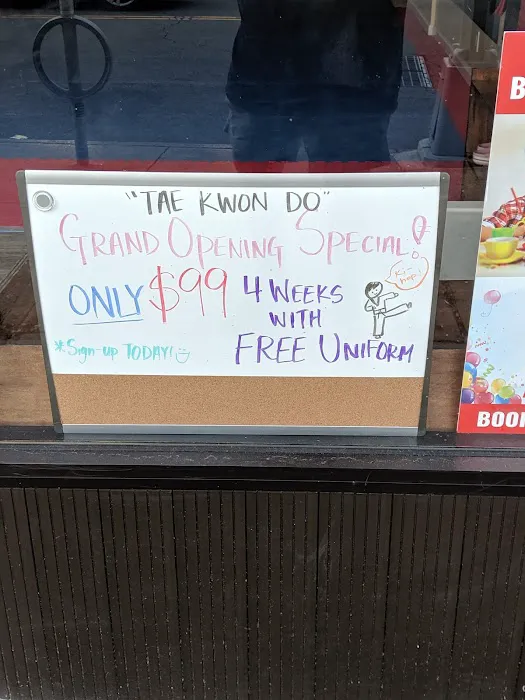 "TAE KWON DO"
GRAND OPENING SPECIAL!
ONLY $99 4 WEEKS
WITH
FREE UNIFORM
*Sign-up TODAY!
B
BOO